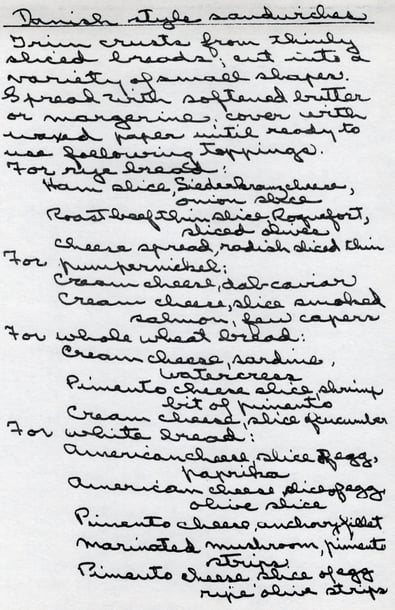 Danish style sandwiches
Trim crusts from thinly
sliced breads; cut into a
variety of small shapes.
Spread with softened butter
or margerine. cover with
waxed paper until ready to
use following toppings.
For rye bread:
Ham slice, Liederkranz cheese,
onion slice
Roast beef thin slice Roquefort,
sliced olives
cheese spread, radish sliced thin
For pumpernickel:
Cream cheese, dab caviar
Cream cheese, slice smoked
salmon, few capers
For whole wheat bread:
Cream cheese, sardine,
watercress
Pimento cheese slice, shrimp
bit of pimento
Cream cheese, slice of cucumber
For white bread:
American cheese, slice of egg,
paprika
American cheese, slice of egg,
olive slice
Pimento cheese, anchovy fillet
marinated mushroom, pimento
strips
Pimento cheese slice of egg
ripe olive strips